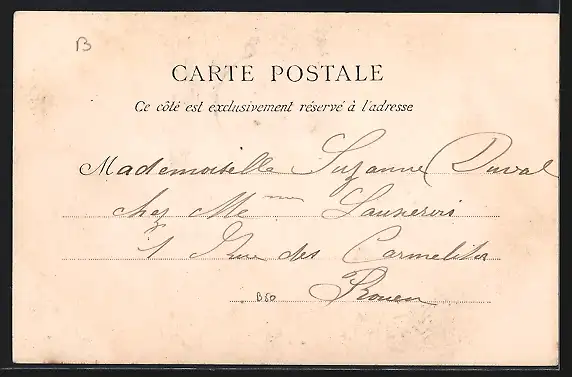 B
CARTE POSTALE
Ce côté est exclusivement réservé à l'adresse
Mademoiselle Suzanne Duval
chez Me
Rue des Carmelites
B50
Rouen